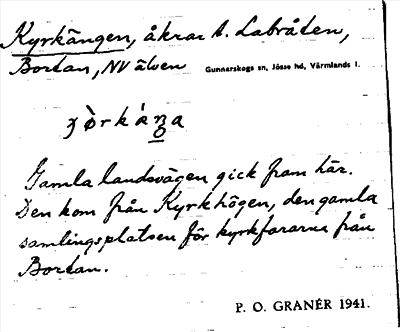 Kyrkängen, åkrar t. Labråten,
Bortan, NV älven Gunnarskogs sn, Jösse hd, Värmlands l.
Gamla landsvägen gick fram här.
Den kom från Kyrkhögen, den gamla
samlingsplatsen för kyrkfararna från
Bortan.
P. O. GRANÉR 1941.